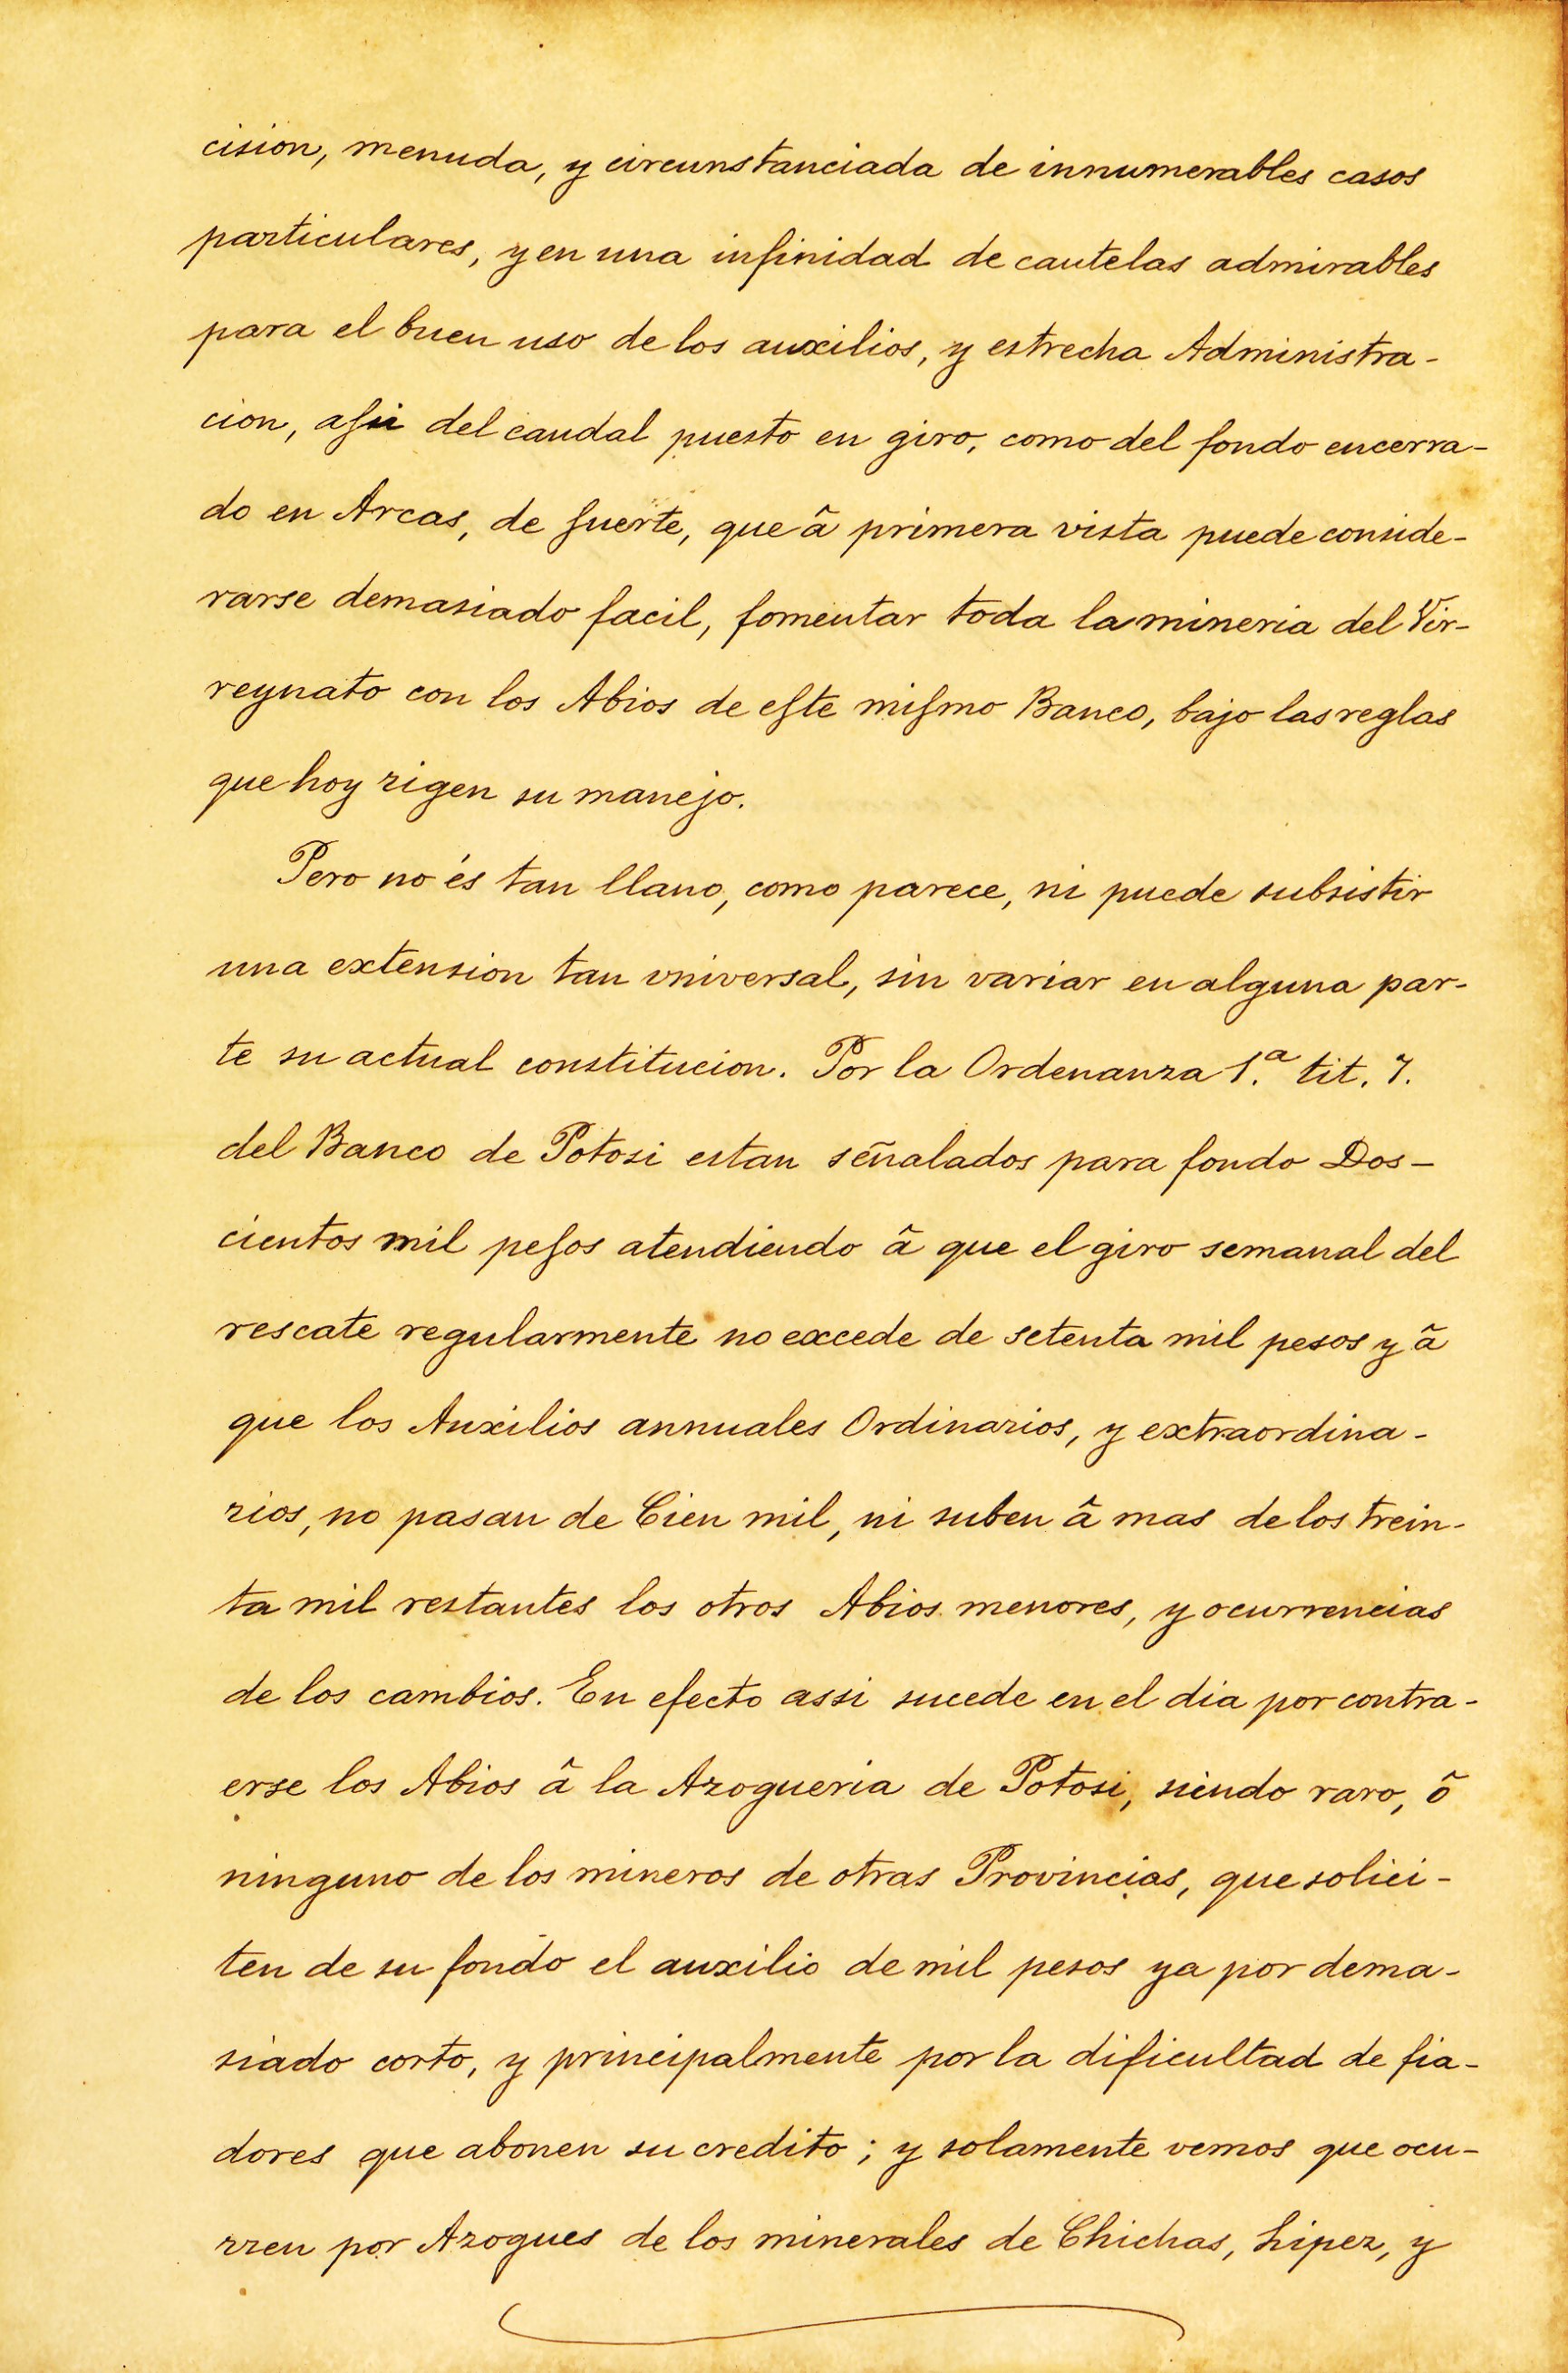 cision, menuda, y circunstanciada de innumerables casos
particulares, y en una infinidad de cautelas admirables
para el buen uso de los auxilios, y estrecha Administra-
cion, aſsi del caudal puesto en giro, como del fondo encerra-
do en Arcas, de ſuerte, que â primera vista puede conside-
rarse demasiado facil, fomentar toda la mineria del Vir-
reynato con los Abios de eſte miſmo Banco, bajo las reglas
que hoy rigen su manejo.
Pero no és tan llano, como parece, ni puede subsistir
una extension tan vniversal, sin variar en alguna par-
te su actual constitucion. Por la Ordenanza 1.ª tit. 7.
del Banco de Potosi estan señalados para fondo Dos-
cientos mil peſos atendiendo â que el giro semanal del
rescate regularmente no excede de setenta mil pesos y â
que los Auxilios annuales Ordinarios, y extraordina-
rios, no pasan de Cien mil, ni suben â mas de los trein-
ta mil restantes los otros Abios menores, y ocurrencias
de los cambios. En efecto assi sucede en el dia por contra-
erse los Abios â la Azogueria de Potosi, siendo raro, ô
ninguno de los mineros de otras Provincias, que solici-
ten de su fondo el auxilio de mil pesos ya por dema-
siado corto, y principalmente por la dificultad de fia-
dores que abonen su credito; y solamente vemos que ocu-
rren por Azogues de los minerales de Chichas, Lipez, y